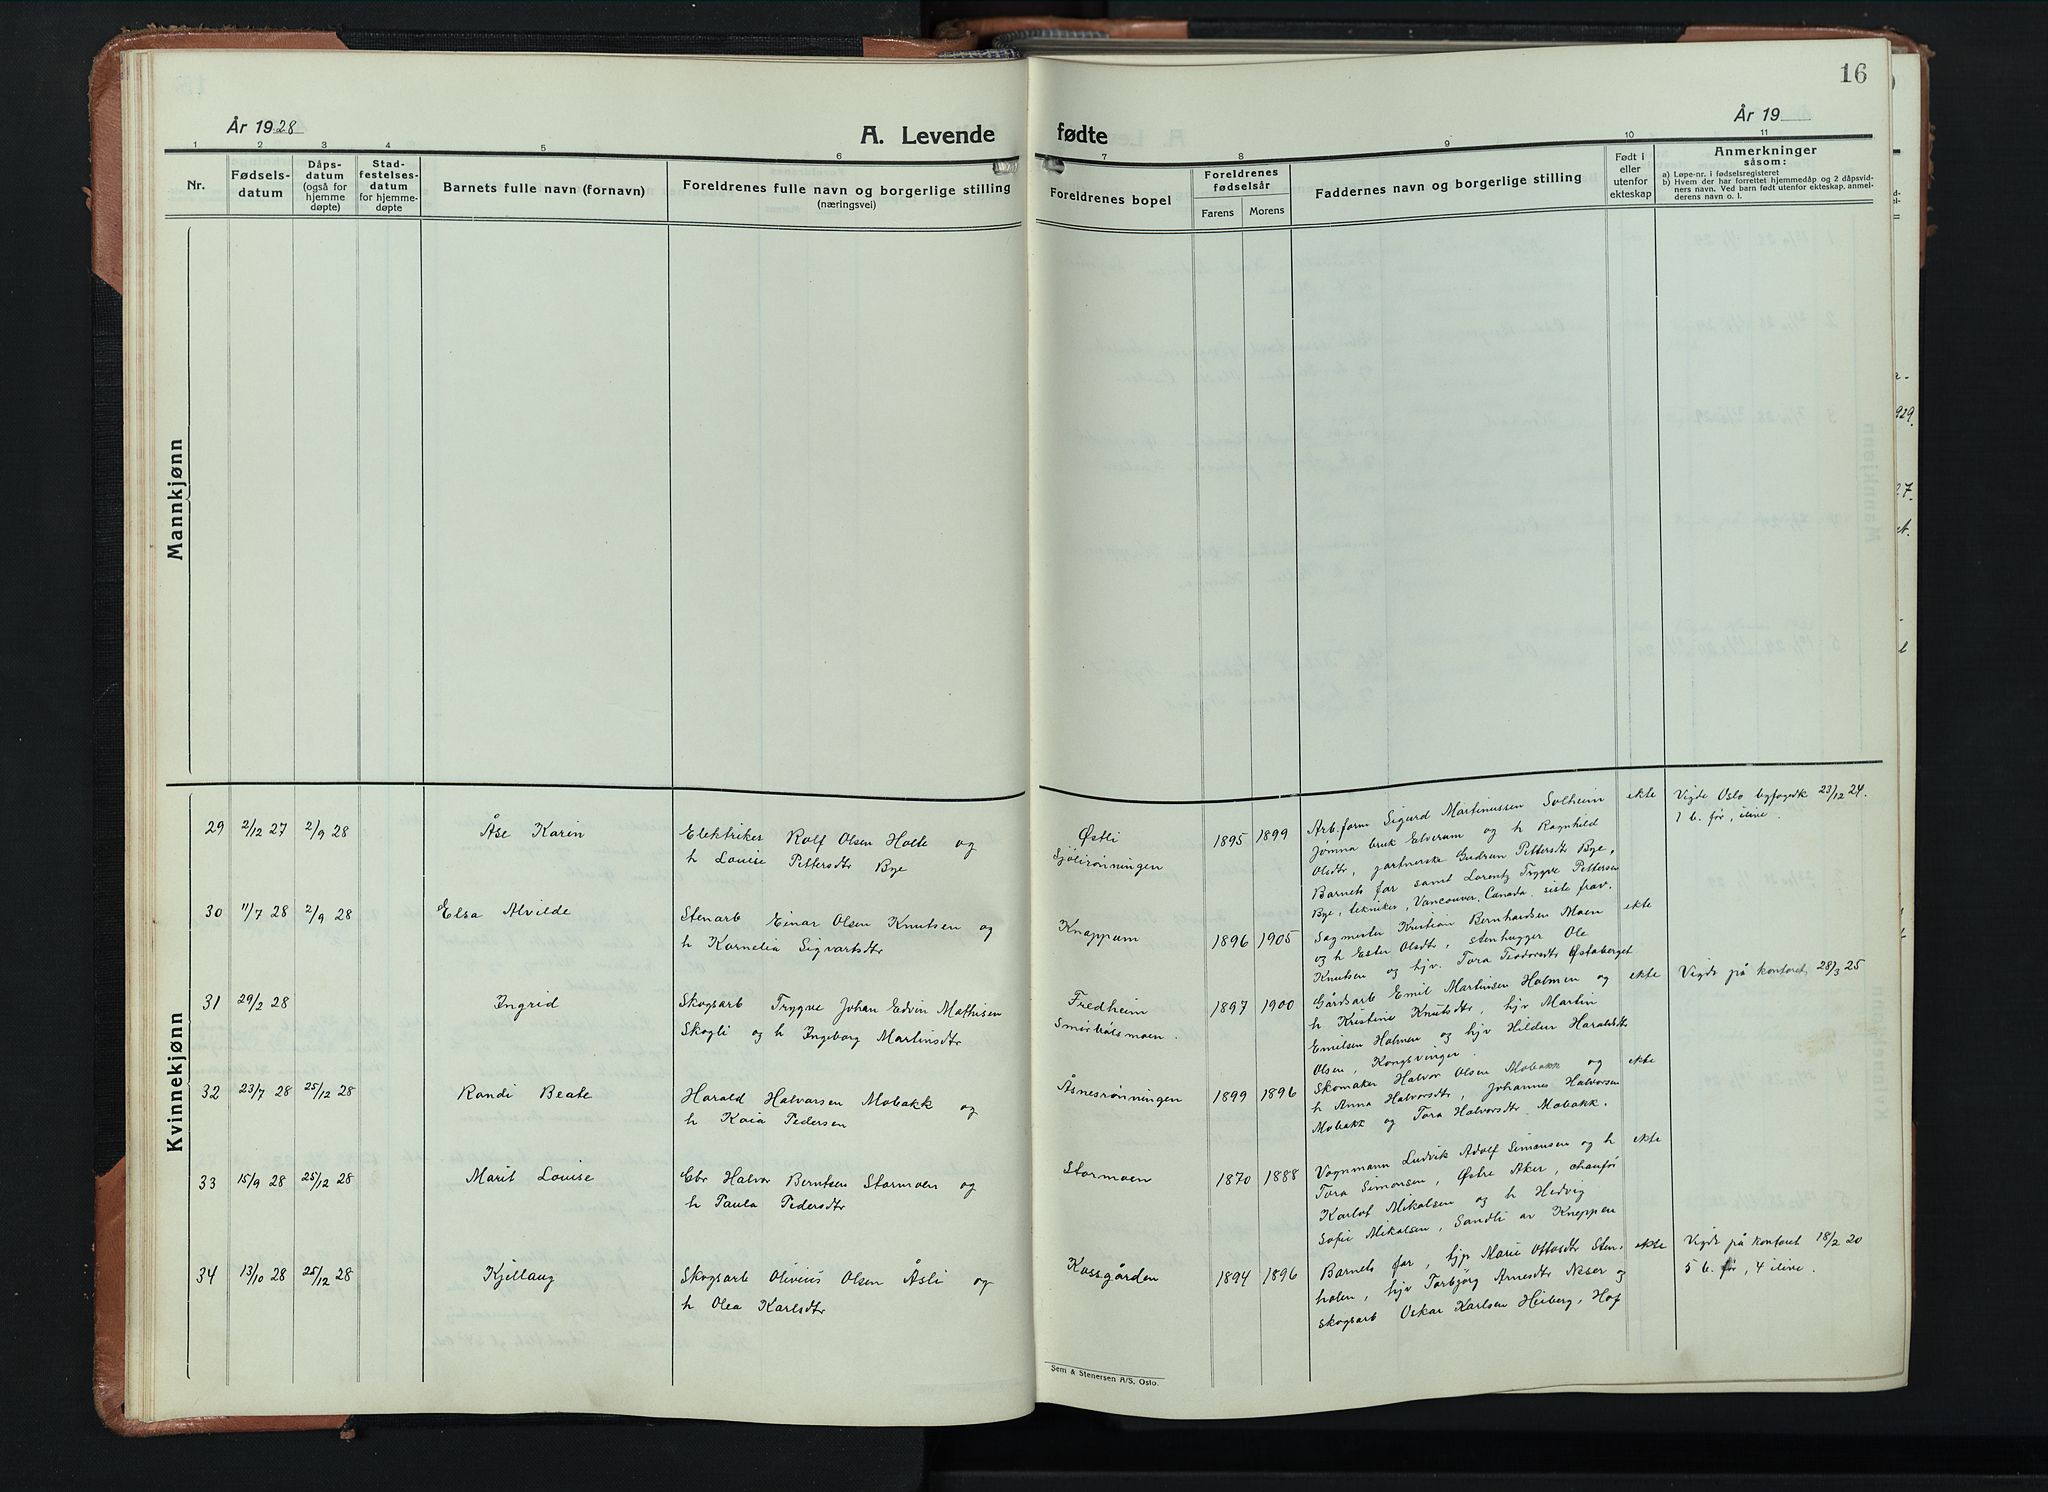 16
År 1928
A. Levende fødte
År 19
1
2
3
4
5
6
7
8
9
10
11
Nr.
Fødsels-
datum
Dåps-
datum
(også for
hjemme
døpte)
Stad-
festelses-
datum
for hjemme-
døpte
Barnets fulle navn (fornavn)
Foreldrenes fulle navn og borgerlige stilling
(næringsvei)
Foreldrenes bopel
Foreldrenes
fødselsår
Farens
Morens
Faddernes navn og borgerlige stilling
Født i
eller
utenfor
ekteskap
Anmerkninger
såsom:
a) Løpe-nr. i fødselsregisteret
b) Hvem der har forrettet hjemmedåp og 2 dåpsvid-
ners navn. Ved barn født utenfor ekteskap, anmel-
derens navn o. l.
Mannkjønn
Kvinnekjønn
29 2/12 27 2/9 28 Åse Karin
Elektriker Rolf Olsen Holte og
h Louise Pettersdtr Bye
Østli
1895 1899
Arb.form Sigurd Martinussen Solheim
Jømna bruk Elverum og h Ragnhild
Olsdtr, Gudrun Pettersdtr Bye,
Barnets far samt Lorentz Trygve Pettersen
Bye, tekniker, Vancouver, Canada, siste frav.
ekte
Vigde Oslo byfogedk 23/12 24.
1 b. før, ilive.
30 11/7 28 2/9 28 Elsa Alvilde
Stenarb Einar Olsen Knutsen og
h Kornelia Sigvartsdtr
Knappum
1896 1905
Sagmester Kristian Bernhardsen Moen
og h Ester Olsdtr, stenhugger Ole
Knutsen og hjv. Tora Teodorsdtr Østaberget
ekte
31 29/2 28 Ingrid
Skogsarb Trygve Johan Edvin Mathisen
Skogli og h Ingeborg Martinsdtr
Fredheim
1897 1900
Gårdsarb Emil Martinsen Holmen og
h Kristine Knutsdtr, hjv Martin
Emilsen Holmen og hjv Hilden Haraldsdtr
Olsen, Kongsvinger.
ekte
Vigde på kontoret 28/3 25
32 23/7 28 25/12 28 Randi Beate
Harald Halvorsen Mobakk og
h Kaia Pedersen
Åsnesrønningen
1899 1896
Skomaker Halvor Olsen Mobakk og
h Anna Halvorsdtr, Johannes Halvorsen
Mobakk og Tora Halvorsdtr Mobakk.
ekte
33 15/9 28 25/12 28 Marit Louise
Ebr Halvor Berntsen Stormoen og
h Paula Pedersdtr
Stormoen
1870 1888
Vognmann Ludvik Adolf Simonsen og h
Tora Simonsen, Østre Aker, chaufør
Karlof Mikalsen og h Hedvig
Sofie Mikalsen, Sandli av Knappen
ekte
34 13/10 28 25/12 28 Kjellaug
Skogsarb Olivius Olsen Åsli og
h Olea Karlsdtr
Kossgården
1894 1896
Barnets far, hjp Marie Ottosdtr Sten-
holen, hjv Torbjørg Arnesdtr Neser og
skogsarb Oskar Karlsen Heiberg, Hof
ekte
Vigde på kontoret 18/2 20
5 b. før, 4 ilive.
Sem & Stenersen A/S, Oslo.